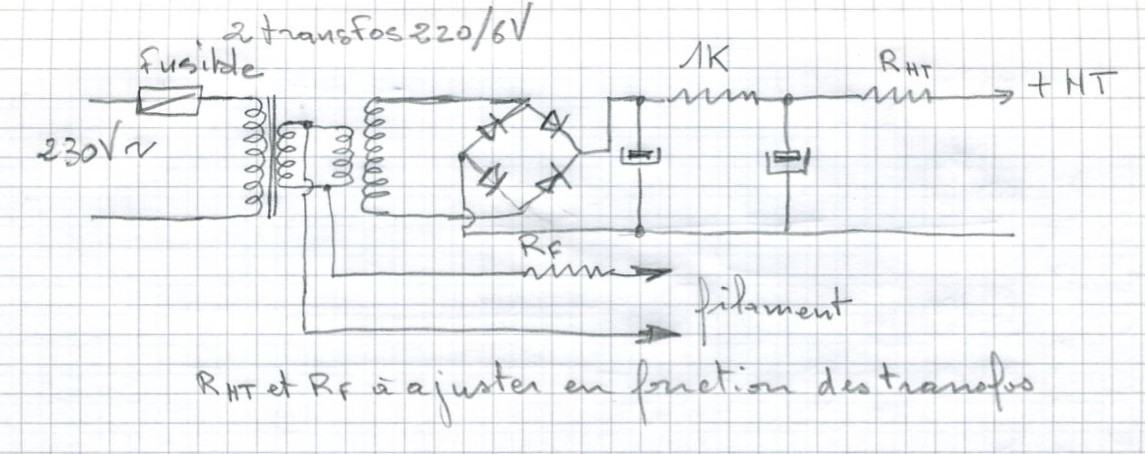 2 transfos 220/6V
fusible
1K
RHT
+ HT
230V~
RF
filament
RHT et RF à ajuster en fonction des transfos